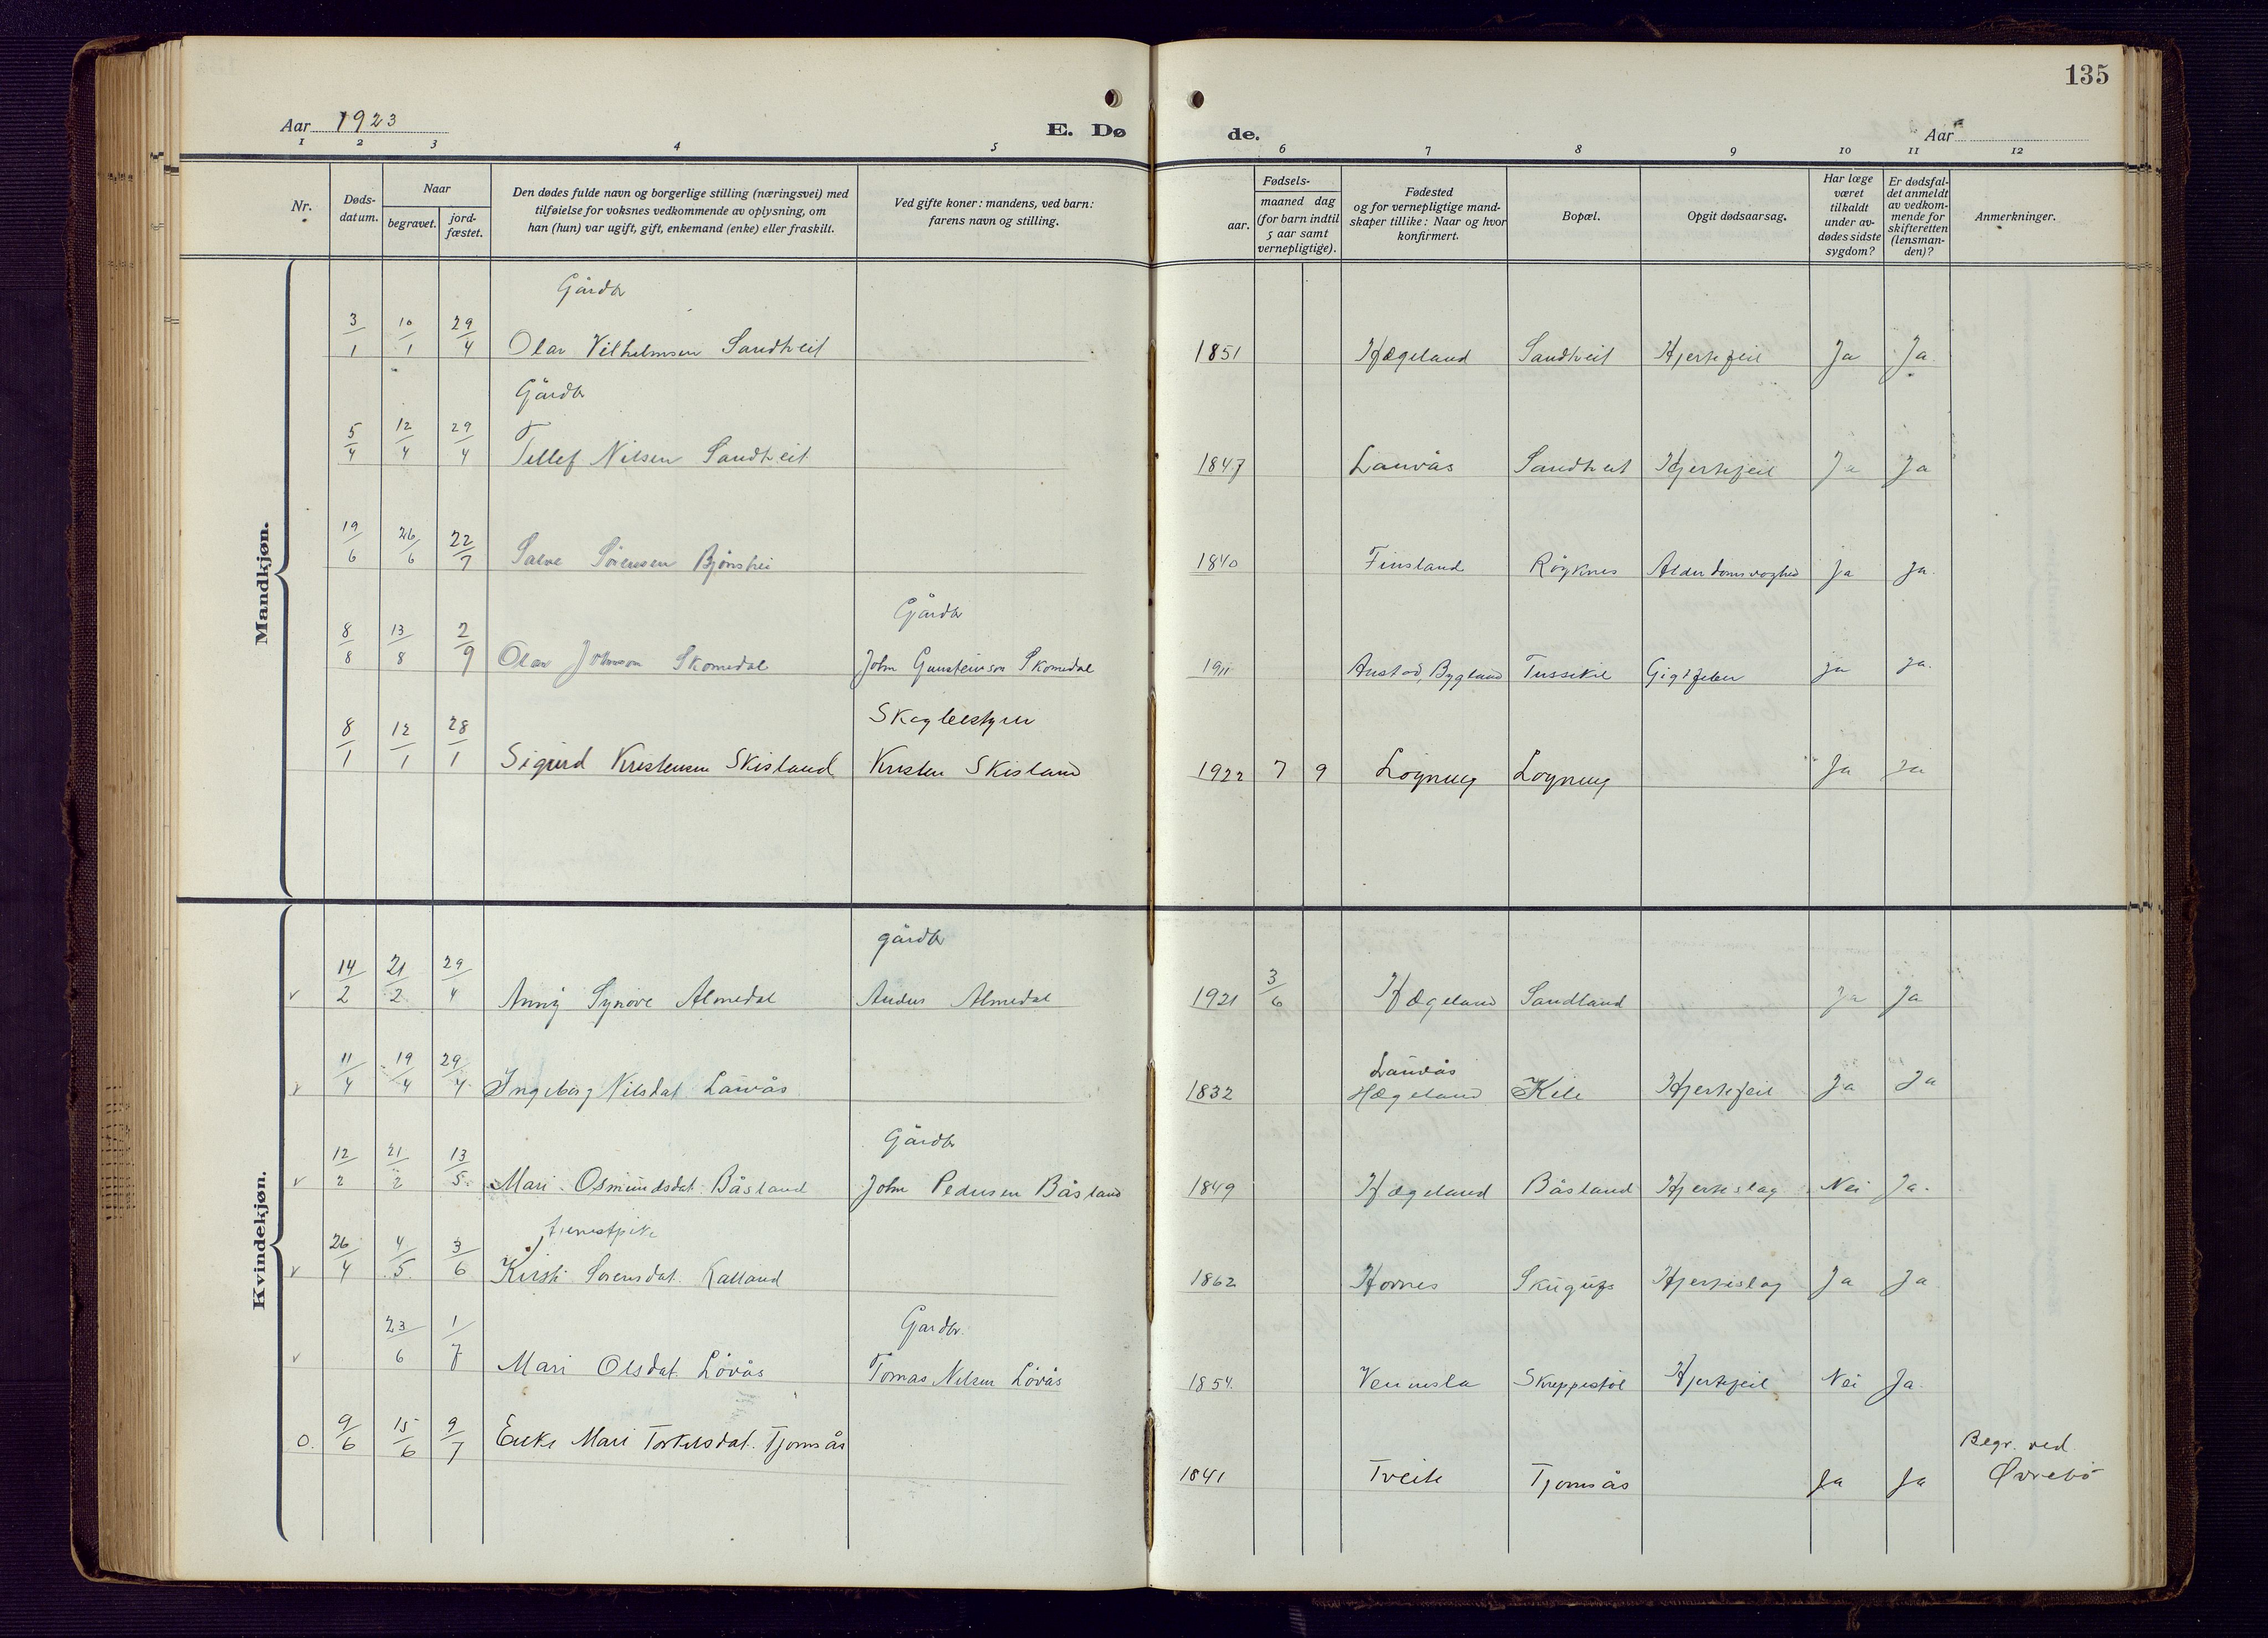 135
Aar 1923
E. Dø
de.
Aar
1 2 3 4 5 6 7 8 9 10 11 12
Nr.
Døds-
datum.
Naar
begravet.
jord-
fæstet.
Den dødes fulde navn og borgerlige stilling (næringsvei) med
tilføielse for voksnes vedkommende av oplysning, om
han (hun) var ugift, gift, enkemand (enke) eller fraskilt.
Ved gifte koner: mandens, ved barn:
farens navn og stilling.
Fødsels-
aar.
maaned dag
(for barn indtil
5 aar samt
vernepligtige).
Fødested
og for vernepligtige mand-
skaper tillike: Naar og hvor
konfirmert.
Bopæl.
Opgit dødsaarsag.
Har læge
været
tilkaldt
under av-
dødes sidste
sygdom?
Er dødsfal-
det anmeldt
av vedkom-
mende for
skifteretten
(lensman-
den)?
Anmerkninger.
Mandkjøn.
Gårdbr
3/1 10/1 29/4 Olav Vilhelmsen Sandtveit 1851 Hægeland Sandtveit Hjertefeil Ja Ja
Gårdbr
5/4 12/4 29/4 Tellef Nilsen Sandtveit 1847 Lauvås Sandtveit Hjertefeil Ja Ja
19/6 26/6 22/7 Salve Sörensen Bjönshei 1840 Finsland Röyknes Alderdomssvaghed Ja Ja.
Gårdbr
8/8 13/8 2/9 Olav Johnson Skomedal John Gunsteinson Skomedal 1911 Austad, Bygland Tussekil Gigtfeber Ja Ja.
Skoglestyrer
8/1 12/1 28/1 Sigurd Kristensen Skisland Kristen Skisland 1922 7 9 Lögning Logning Ja Ja
Kvindekjøn.
gårdbr
v 14/2 21/2 29/4 Anny Synöve Almedal Anders Almedal 1921 3/6 Hægeland Sandland Ja Ja
v 11/4 19/4 29/4 Ingeborg Nilsdat Lauvås 1832 Lauvås
Hægeland Kile Hjertefeil Ja Ja
Gårdbr
v 12/2 21/2 13/5. Mari Osmundsdat. Båsland John Pedersen Båsland 1849 Hægeland Båsland Hjerteslag Nei Ja.
tjenestpike
v 26/4 4/5 3/6 Kirsti Sörensdat. Kalland 1862 Hornes Hjerteslag Ja Ja
Gardbr.
v 23/6 1/7 Mari Olsdat. Lövås Tomas Nilsen Lövås 1854. Vennesla Skreppestöl Hjertefeil Nei Ja.
O. 9/6 15/6 9/7 Enke Mari Torkilsdat. Tjomsås 1841 Tveite Tjomsås Ja Ja Begr. ved
Øvrebö